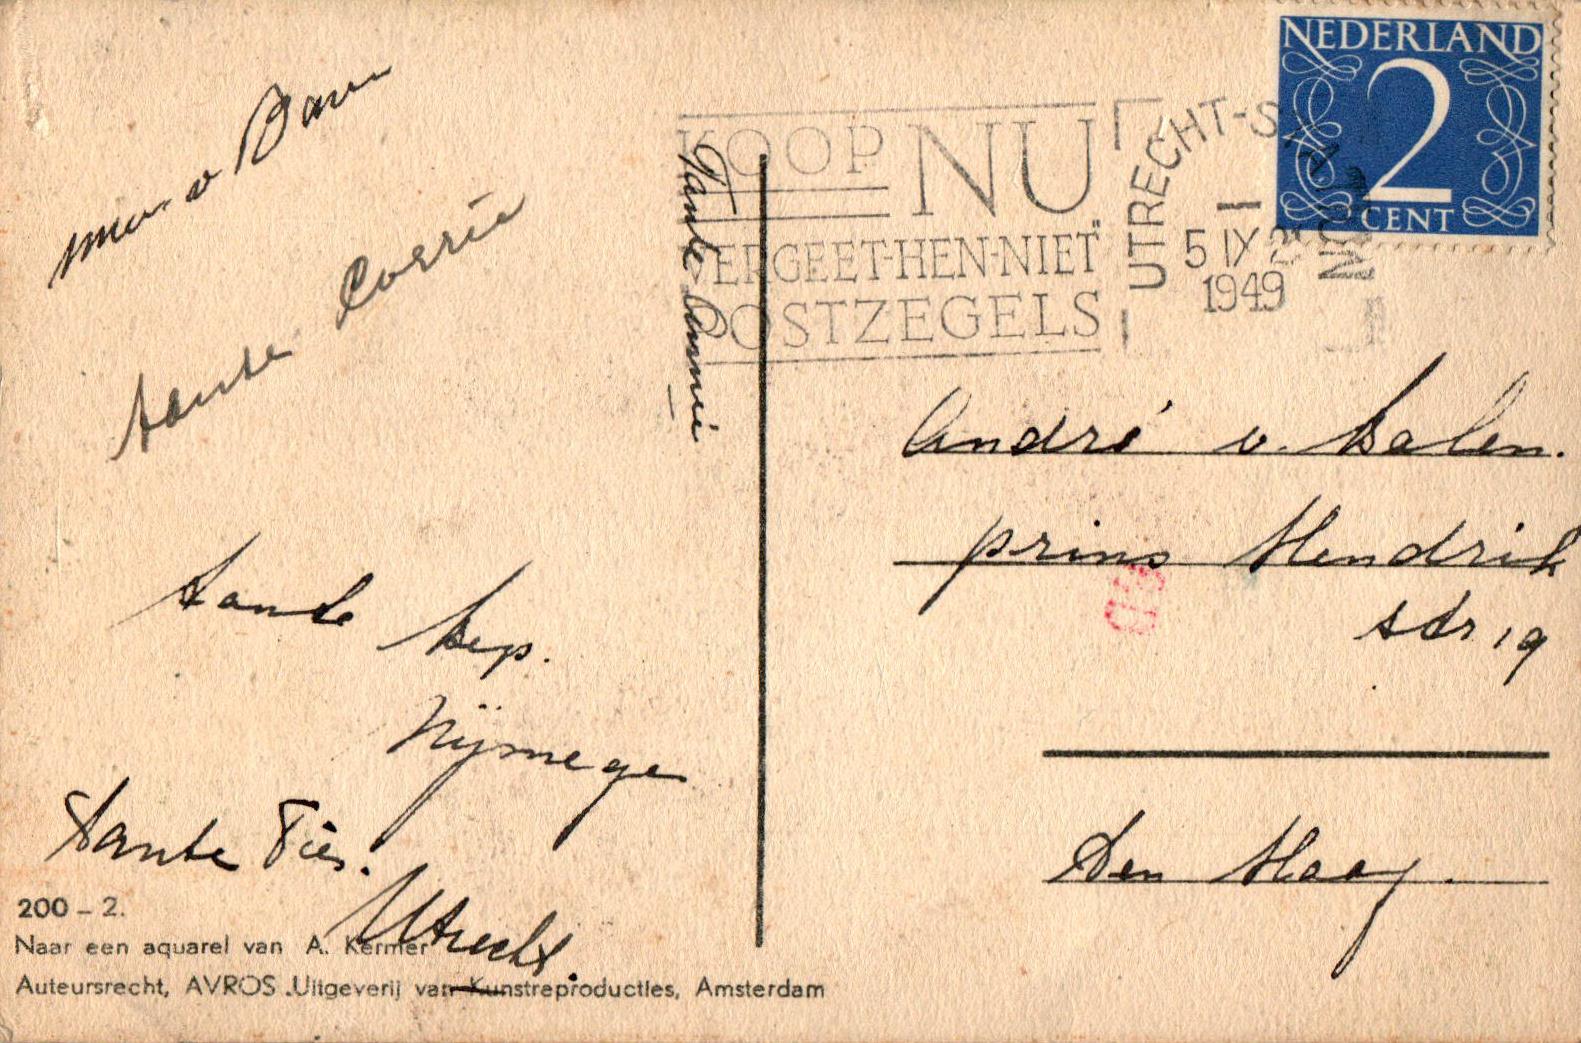 NEDERLAND
2
CENT
KOOP NU
VERGEET-HEN-NIET"
POSTZEGELS
UTRECHT-STATION
5 IX
1949
Tante Corrie
Tante Annie
Tante Bep.
Nijmegen
Tante Ties.
Utrecht.
André v. Galen.
prins Hendrik
str 19
Den Haag.
200 - 2.
Naar een aquarel van A. Kermer
Auteursrecht, AVROS Uitgeverij van Kunstreproducties, Amsterdam